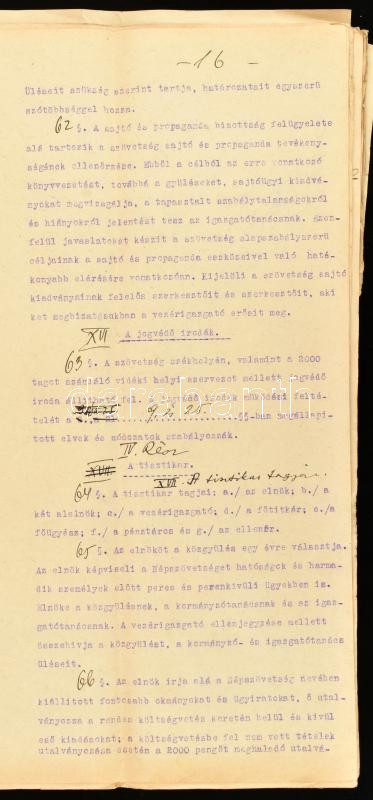 - 16 -
Üléseit szükség szerint tartja, határozatait egyszerü
szótöbbséggel hozza.
62 §. A sajtó és propaganda bizottság felügyelete
alá tartozik a szövetség sajtó és propaganda tevékeny-
ségének ellenőrzése. Ebből a célból az erre vonatkozó
könyvvezetést, továbbá a gyüléseket, sajtóügyi kiadvá-
nyokat megvizsgálja, a tapasztalt szabálytalanságokról
és hiányokról jelentést tesz az igazgatótanácsnak. Ezen-
felül javaslatokat készit a szövetség alapszabályszerü
céljainak a sajtó és propaganda eszközeivel való haté-
konyabb elérésére vonatkozóan. Kijelöli a szövetség sajtó
kiadványainak felelős szerkesztőit és szerkesztőit, aki
ket megbizatásukban a vezérigazgató erősit meg.
XVI A jogvédő irodák.
63 §. A szövetség székhelyén, valamint a 2000
tagot számláló vidéki helyi szervezet mellett jogvédő
iroda állitható fel. A jogvédő irodák működési felté-
telét a 9. és 25. §§-ban megállapi-
tott elvek és módozatok szabályozzák.
IV. Rész
A tisztikar.
XVII. A tisztikar tagjai.
64 §. A tisztikar tagjai: a./ az elnök; b./ a
két alelnök; c./ a vezérigazgató; d./ a főtitkár; e./
főügyész; f./ a pénztáros és g./ az ellenőr.
65 §. Az elnököt a közgyülés egy évre választja.
Az elnök képviseli a Népszövetséget hatóságok és harma-
dik személyek előtt peres és perenkivüli ügyekben is.
Elnöke a közgyülésnek, a kormányzótanácsnak és az igaz-
gatótanácsnak. A vezérigazgató ellenjegyzése mellett
összehivja a közgyülést, a kormányzó- és igazgatótanács
üléseit.
66 §. Az elnök irja alá a Népszövetség nevében
kiállitott fontosabb okmányokat és ügyiratokat, ő utal-
ványozza a rendes költségvetés keretén belül és kivül
eső kiadásokat; a költségvetésbe fel nem vett tételek
utalványozása esetén a 2000 pengőt meghaladó utalvá-